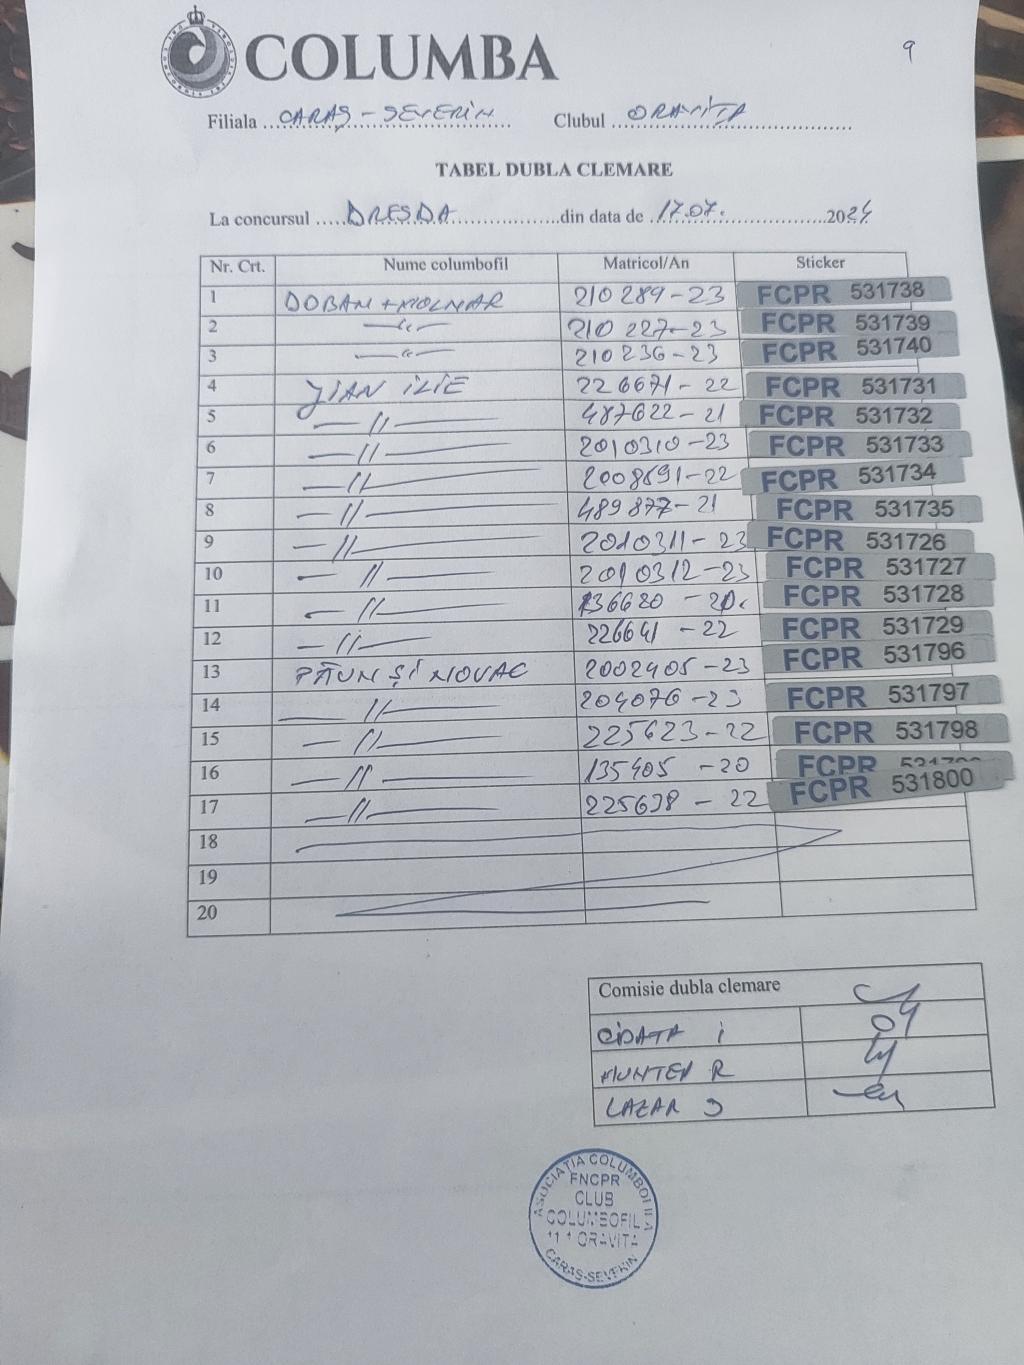 COLUMBA
9
Filiala CARAȘ-SEVERIN Clubul ORAVIȚA
TABEL DUBLA CLEMARE
La concursul DRESDA din data de 17.07. 2024
Nr. Crt. Nume columbofil Matricol/An Sticker
1 DOBAN + MOLNAR 210289-23 FCPR 531738
2 —"— 210227-23 FCPR 531739
3 —"— 210236-23 FCPR 531740
4 JIAN ILIE 226671-22 FCPR 531731
5 —//— 487622-21 FCPR 531732
6 —//— 2010310-23 FCPR 531733
7 —//— 2008691-22 FCPR 531734
8 —//— 489877-21 FCPR 531735
9 —//— 2010311-23 FCPR 531726
10 —//— 2010312-23 FCPR 531727
11 —//— 136620-20. FCPR 531728
12 —//— 226641-22 FCPR 531729
13 PĂUN ȘI NOVAC 2002405-23 FCPR 531796
14 —//— 204076-23 FCPR 531797
15 —//— 225623-22 FCPR 531798
16 —//— 135405-20 FCPR
17 —//— 225638-22 FCPR 531800
18
19
20
Comisie dubla clemare
I
MUNTEN R
LAZAR
ASOCIATIA COLUMBOFILA
FNCPR
CLUB
COLUMBOFIL
"1" ORAVITA
CARAS-SEVERIN